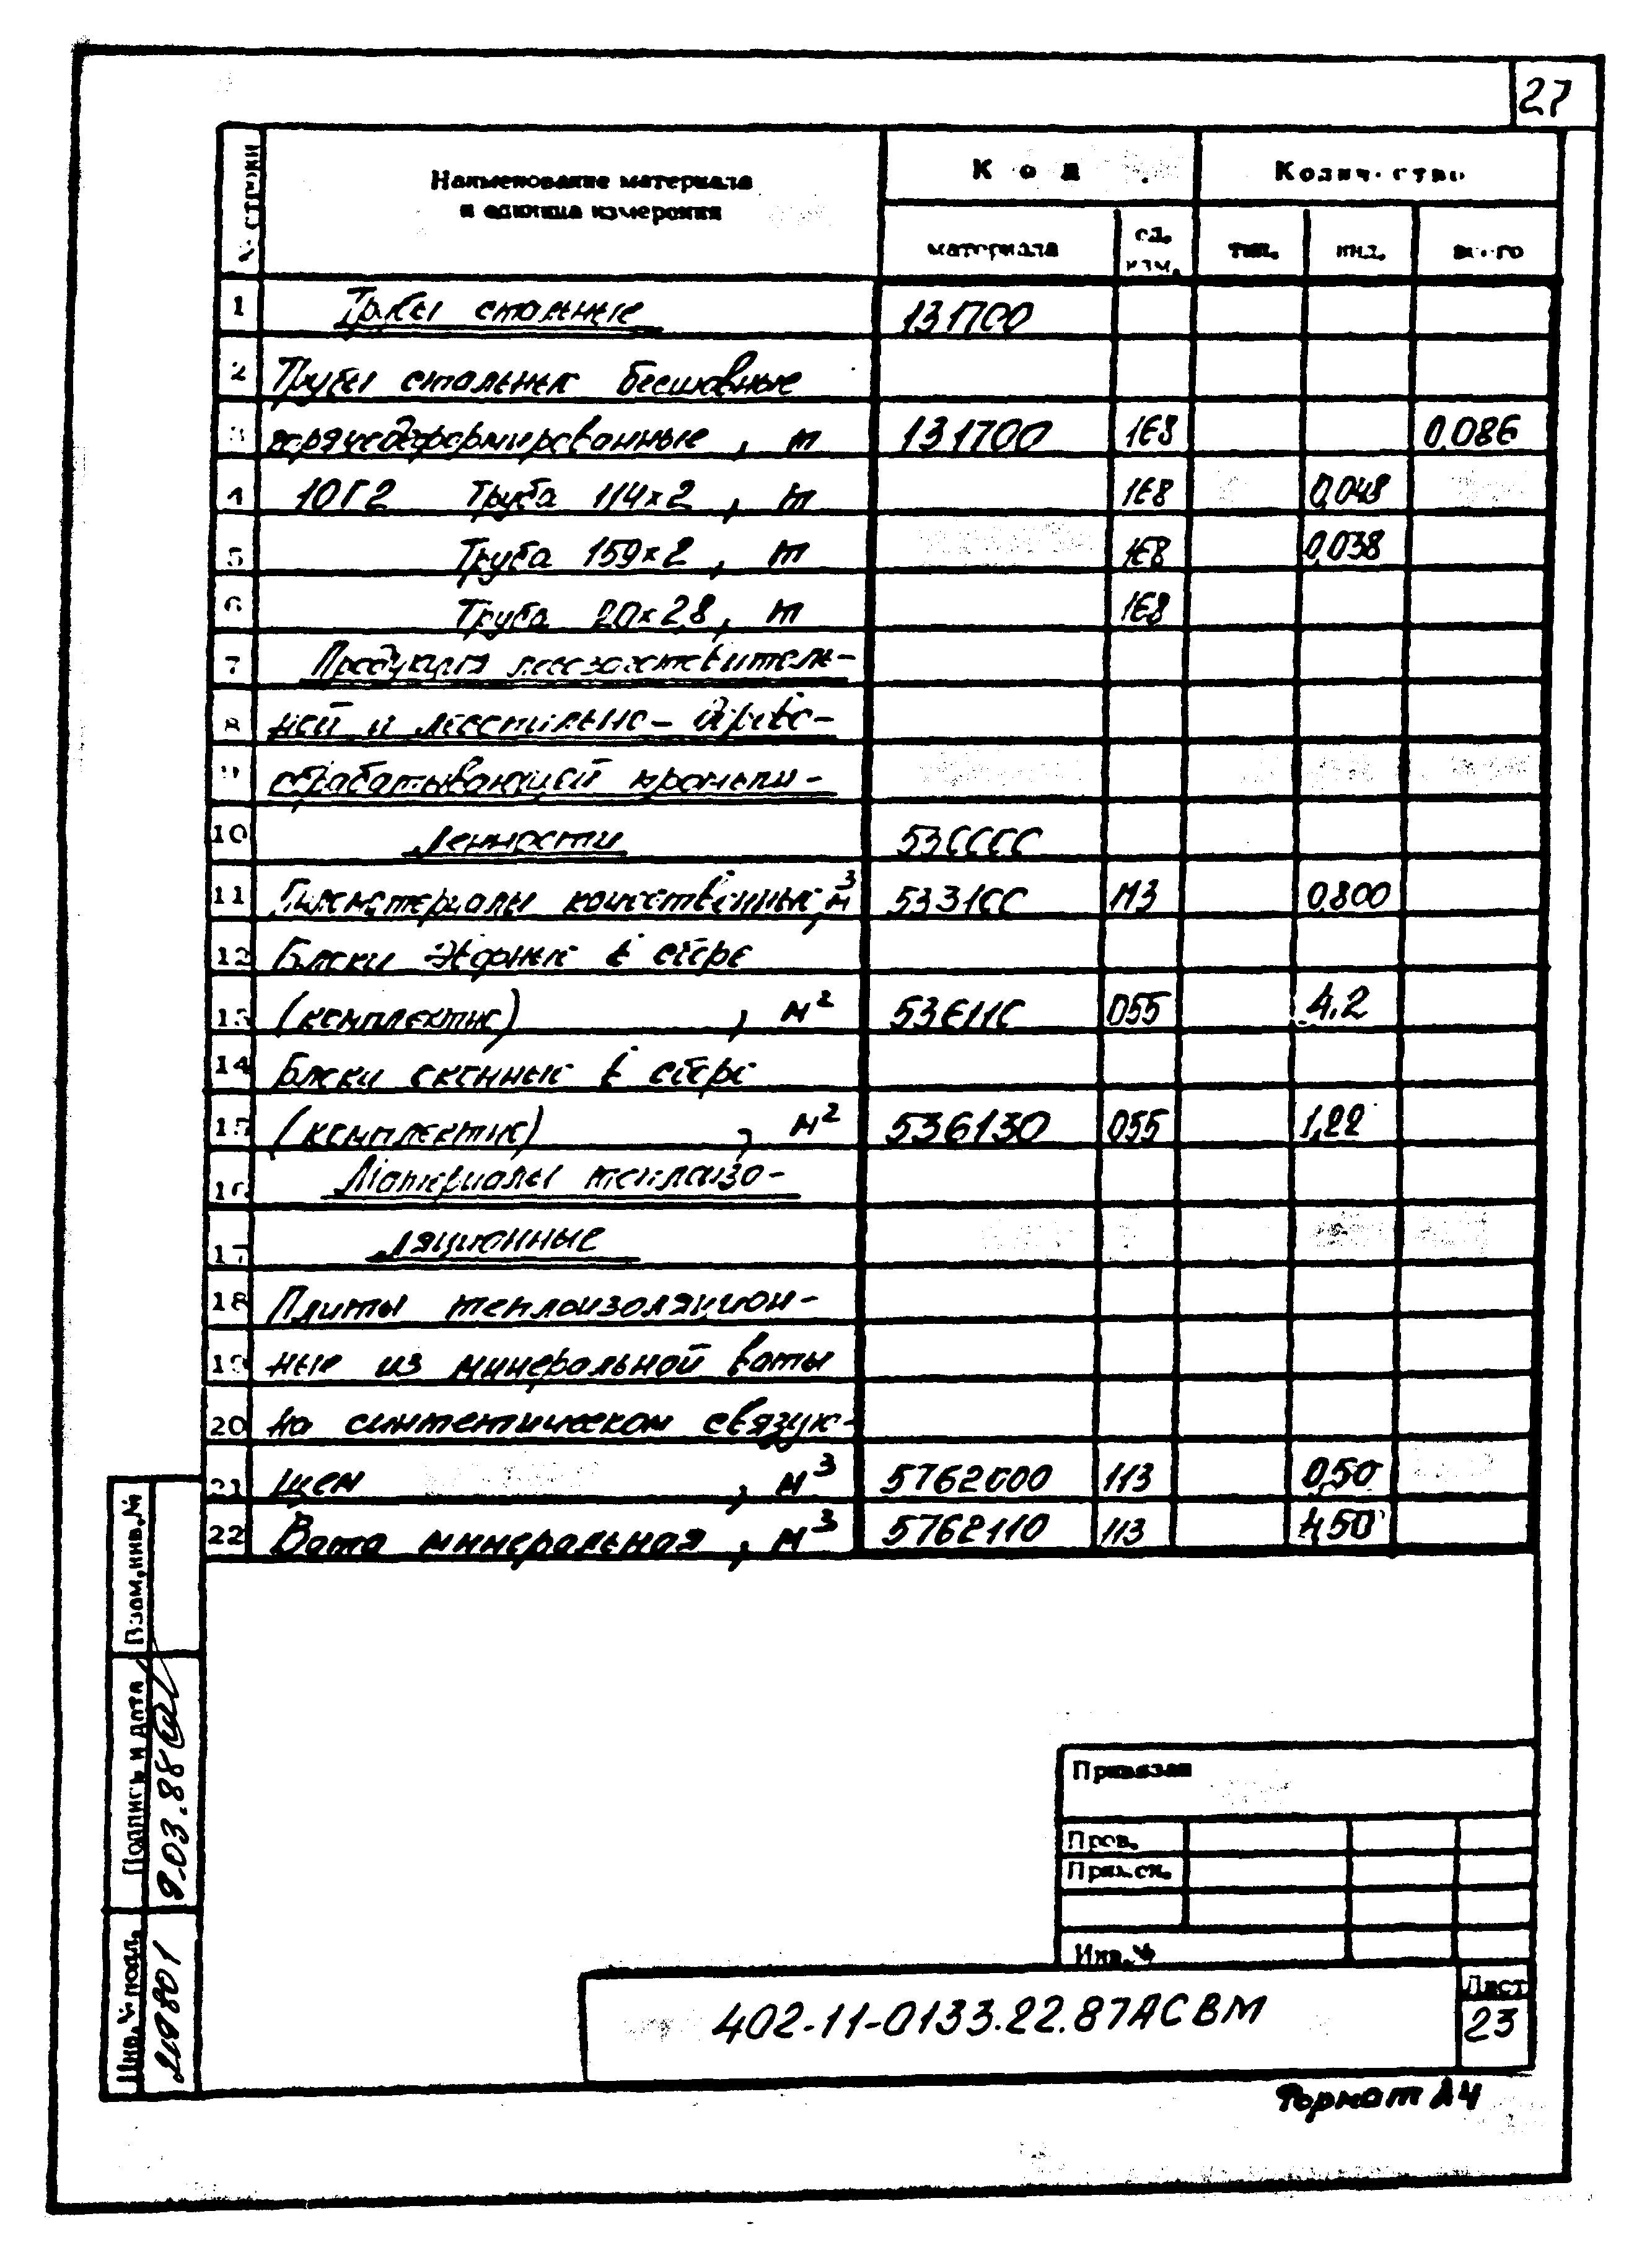 27
№ строки
Наименование материала
и единица измерения
Код
Количество
материала
ед. изм.
тип.
инд.
всего
1 Трубы стальные 131700
2 Трубы стальные бесшовные
3 горячедеформированные, т 131700 168 0,086
4 10Г2 Труба 114×2, т 168 0,048
5 Труба 159×2, т 168 0,038
6 Труба 20×2,8, т 168
7 Продукция лесозаготовитель-
8 ной и лесопильно-дерево-
9 обрабатывающей промыш-
10 ленности 530000
11 Пиломатериалы качественные, м³ 533100 113 0,800
12 Блоки дверные в сборе
13 (комплектно), м² 536110 055 4.2
14 Блоки оконные в сборе
15 (комплектно), м² 536130 055 1,22
16 Материалы теплоизо-
17 ляционные
18 Плиты теплоизоляцион-
19 ные из минеральной ваты
20 на синтетическом связую-
21 щем, м³ 5762000 113 0,50
22 Вата минеральная, м³ 5762110 113 4,50
Взам.инв.№
Подпись и дата
9.03.88
Инв.№ подл.
Привязан
Пров.
Инв.№
402-11-0133.22.87АСВМ
Лист
23
Формат А4